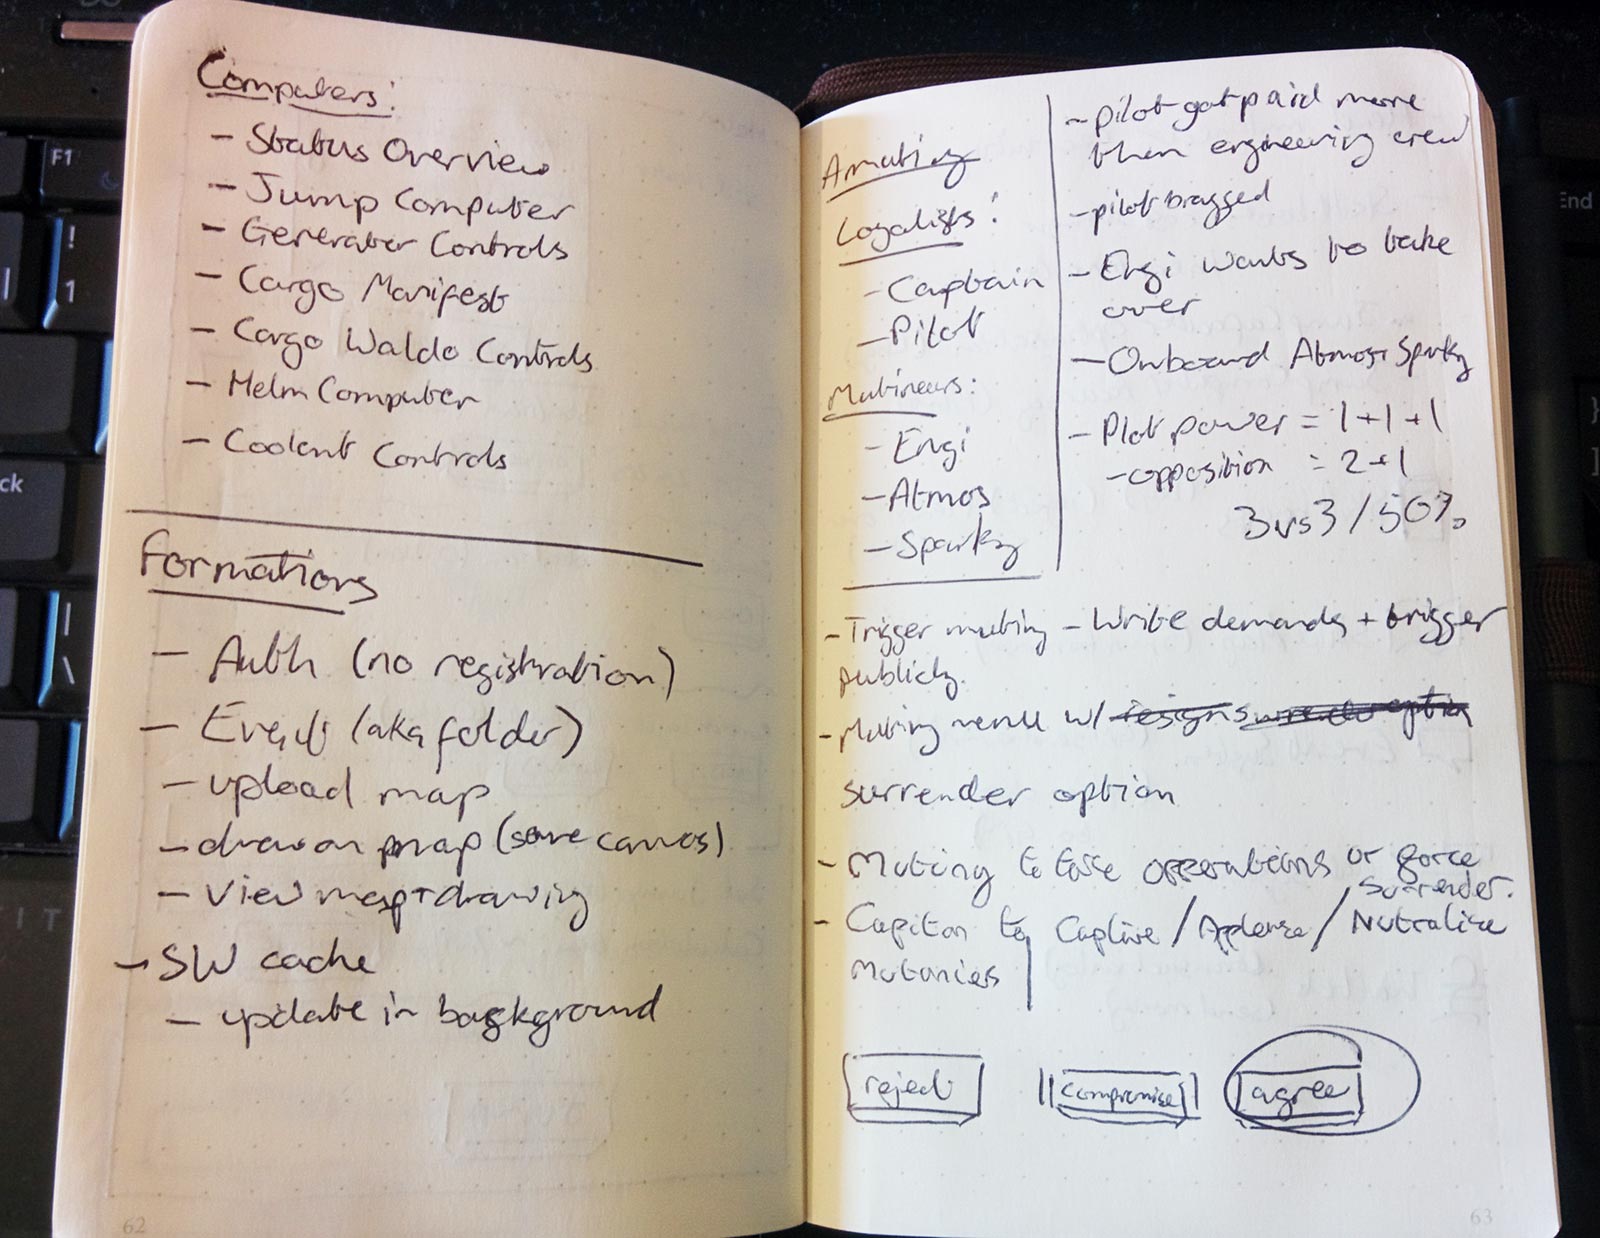 Computers:
- Status Overview
- Jump Computer
- Generator Controls
- Cargo Manifest
- Cargo Waldo Controls
- Helm Computer
- Coolent Controls
Formations
- Auth (no registration)
- Event (aka folder)
- upload map
- draw on map (save canvas)
- View map + drawing
- SW cache
- update in background
62
A mutiny
Loyalists:
- Captain
- Pilot
Mutineers:
- Engi
- Atmos
- Sparky
- pilot got paid more
then engineering crew
- pilot bragged
- Engi wants to take
over
- Onboard Atmos + Sparky
- Plot power = 1+1+1
- opposition = 2+1
3vs3 / 50%
- Trigger mutiny - Write demands + trigger
publicly.
- Mutiny menu w/
surrender option
- Mutiny to take operations or force
surrender.
- Captian to Captive / Appease / Nutralise
Mutaniers
reject
compromise
agree
63
F1
!
1
End
|
\
ck
}
]